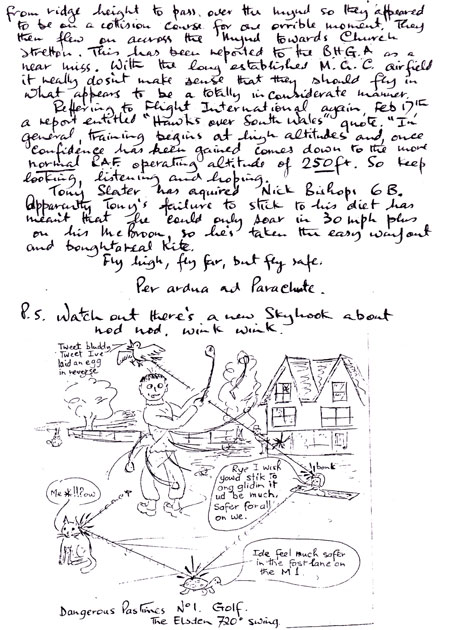 from ridge height to pass over the mynd so they appeared
to be on a collision course for one orrible moment. They
then flew on accross the mynd towards Church
Stretton. This has been reported to the B.H.G.A as a
near miss. With the long established M.G.C airfield
it really dosint make sense that they should fly in
what appears to be a totally inconsiderate manner.
Reffering to Flight International again, Feb 17th
a report entitled "Hawks over South Wales" quote, "In
general, training begins at high altitudes and, once
confidence has been gained comes down to the more
normal R.A.F. operating altitude of 250ft. So keep
looking, listening and hoping.
Tony Slater has aquired Nick Bishops 6B.
Apparantly Tony's failure to stick to his diet has
meant that he could only soar in 30 mph plus
on his McBroon, so he's taken the easy way out
and bought a real kite.
Fly high, fly far, but fly safe.
Per ardua ad Parachute.
P.S. Watch out there's a new Skyhook about
nod nod, wink wink.
Tweet bluddy
Tweet I've
laid an egg
in reverse
bonk
Rye I wish
youd stik to
ang glidin it
ud be much
safer for all
on we.
Me*!!low
Ide feel much safer
in the fast lane on
the M1
Dangerous Pastimes No1. Golf.
The Elsden 720° swing